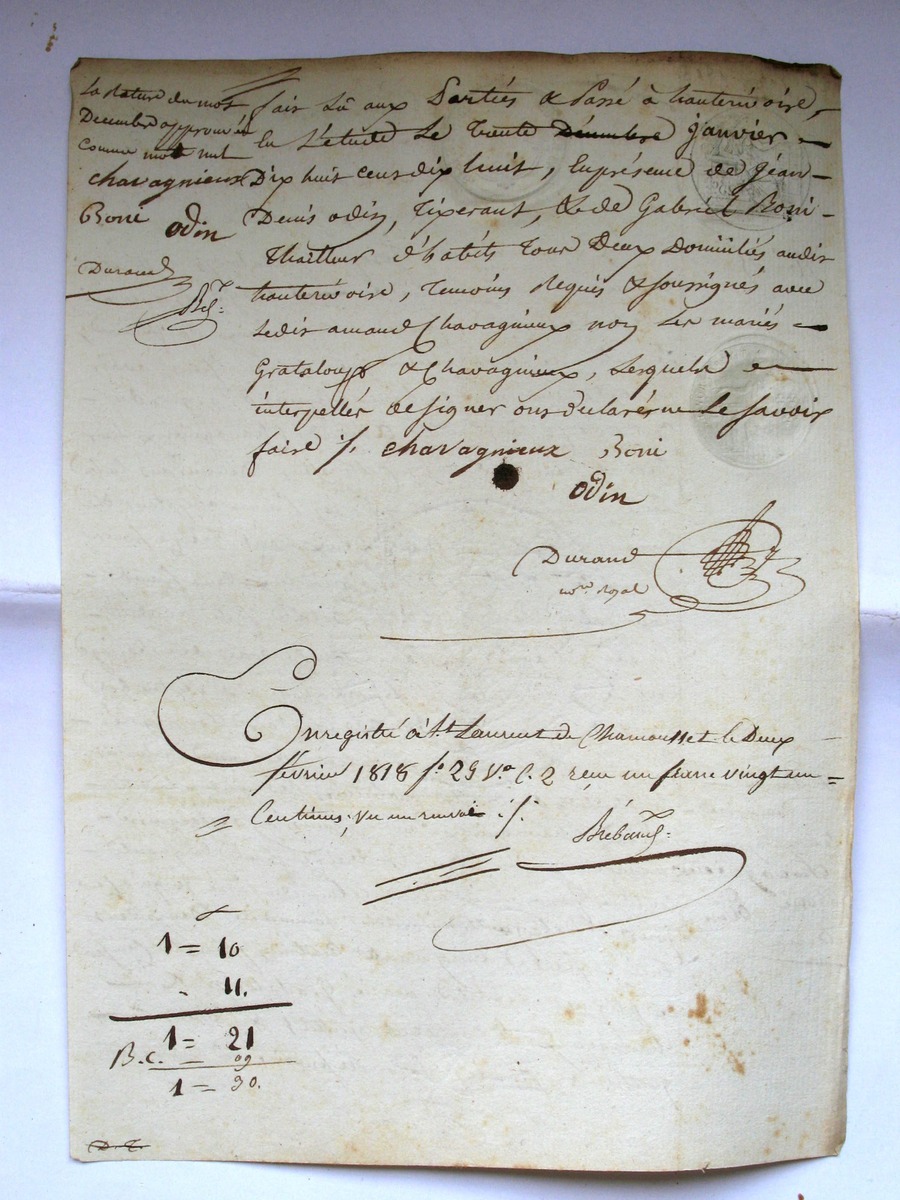 La rature du mot
Decembre approuvée
comme mot nul
chavagnieux
Boni odin
Durand
fait Lû aux Parties & Passé à hauterivoire,
En L'étude Le Trente Décembre janvier
Dix huit cent dix huit, En présence de Jean
Denis odin, Tixerant, & de Gabriel Boni
Thailleur d'habits Tous Deux Domiciliés audit
hauterivoire, Temoins Requis & soussignés avec
Ledit Chavagnieux non Les mariés
Grataloup & Chavagnieux, Lesquels
interpellés de signer ont déclaré ne Le savoir
faire ./. chavagnieux Boni
odin
Durand
nore royal
Enregistré à St Laurent de Chamousset le Deux
février 1818 fo 29 Vo C. 2 reçu un franc vingt un
Centimes, vu un renvoi ./.
1 = 10
- 11.
1 = 21
B.C. - 09
1 = 30.